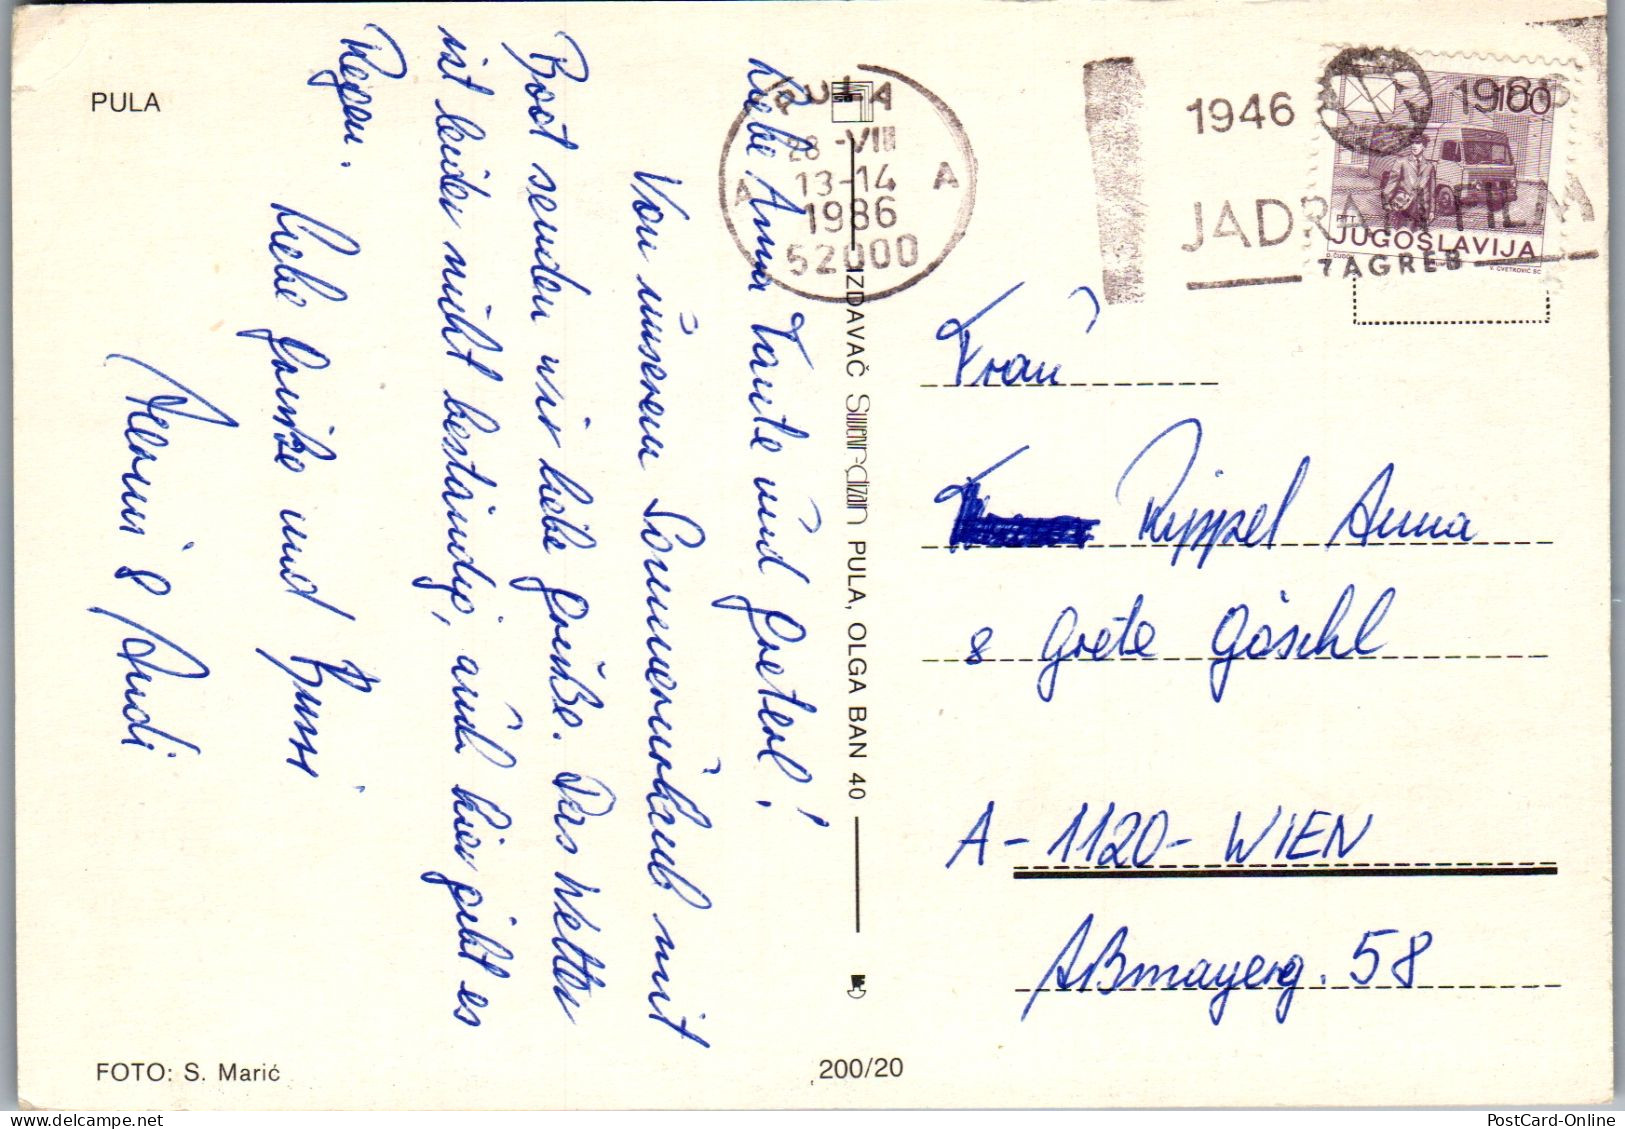 PULA
Liebe Anna Tante und Greterl!
Von unserem Sommerurlaub mit
Boot senden wir liebe Grüße. Das Wetter
ist leider nicht beständig, auch hier gibt es
Regen.
Liebe Grüße und Bussi
& Rudi
FOTO: S. Marić
200/20
IZDAVAČ Suvenir-dizajn PULA, OLGA BAN 40
PULA
28-VIII
13-14
1986
52000
A A
1946 1986
JADRAN FILM
ZAGREB
100
PTT
JUGOSLAVIJA
V. CVETKOVIĆ SC
Frau
Rippel Anna
& Grete Göschl
A-1120-WIEN
Aßmayerg. 58
PostCard-Online